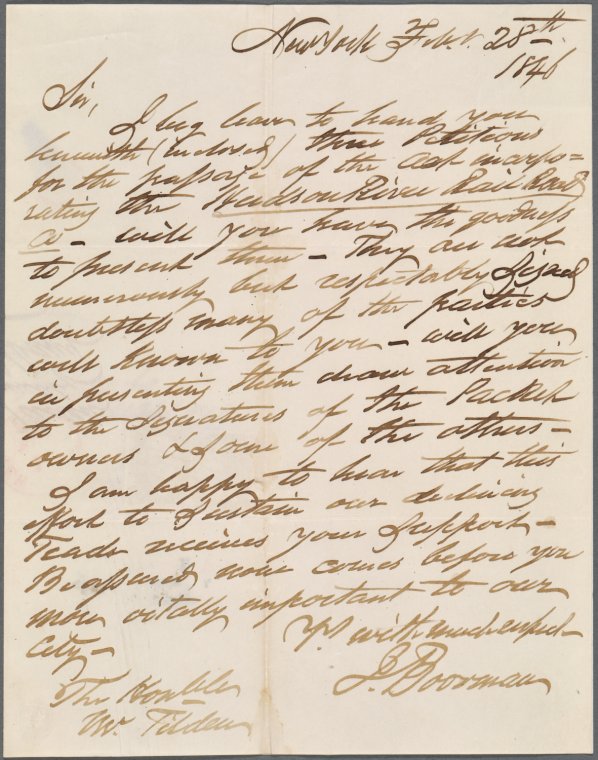 New York Feby. 28th
1846
Sir,
I beg leave to hand you
herewith (enclosed) three Petitions
for the passage of the Act incorpo=
rating the Hudson River Rail Road
Co - will you have the goodness
to present them - They are not
numerously but respectably Signed
doubtless many of the parties
well known to you - will you
in presenting them draw attention
to the Signatures of the Packet
owners & some of the others -
I am happy to hear that this
effort to Sustain our declining
Trade receives your Support -
Be assured none comes before you
more vitally important to our
City -
Yrs with much respect
J. Boorman
The Honble
Mr. Tilden